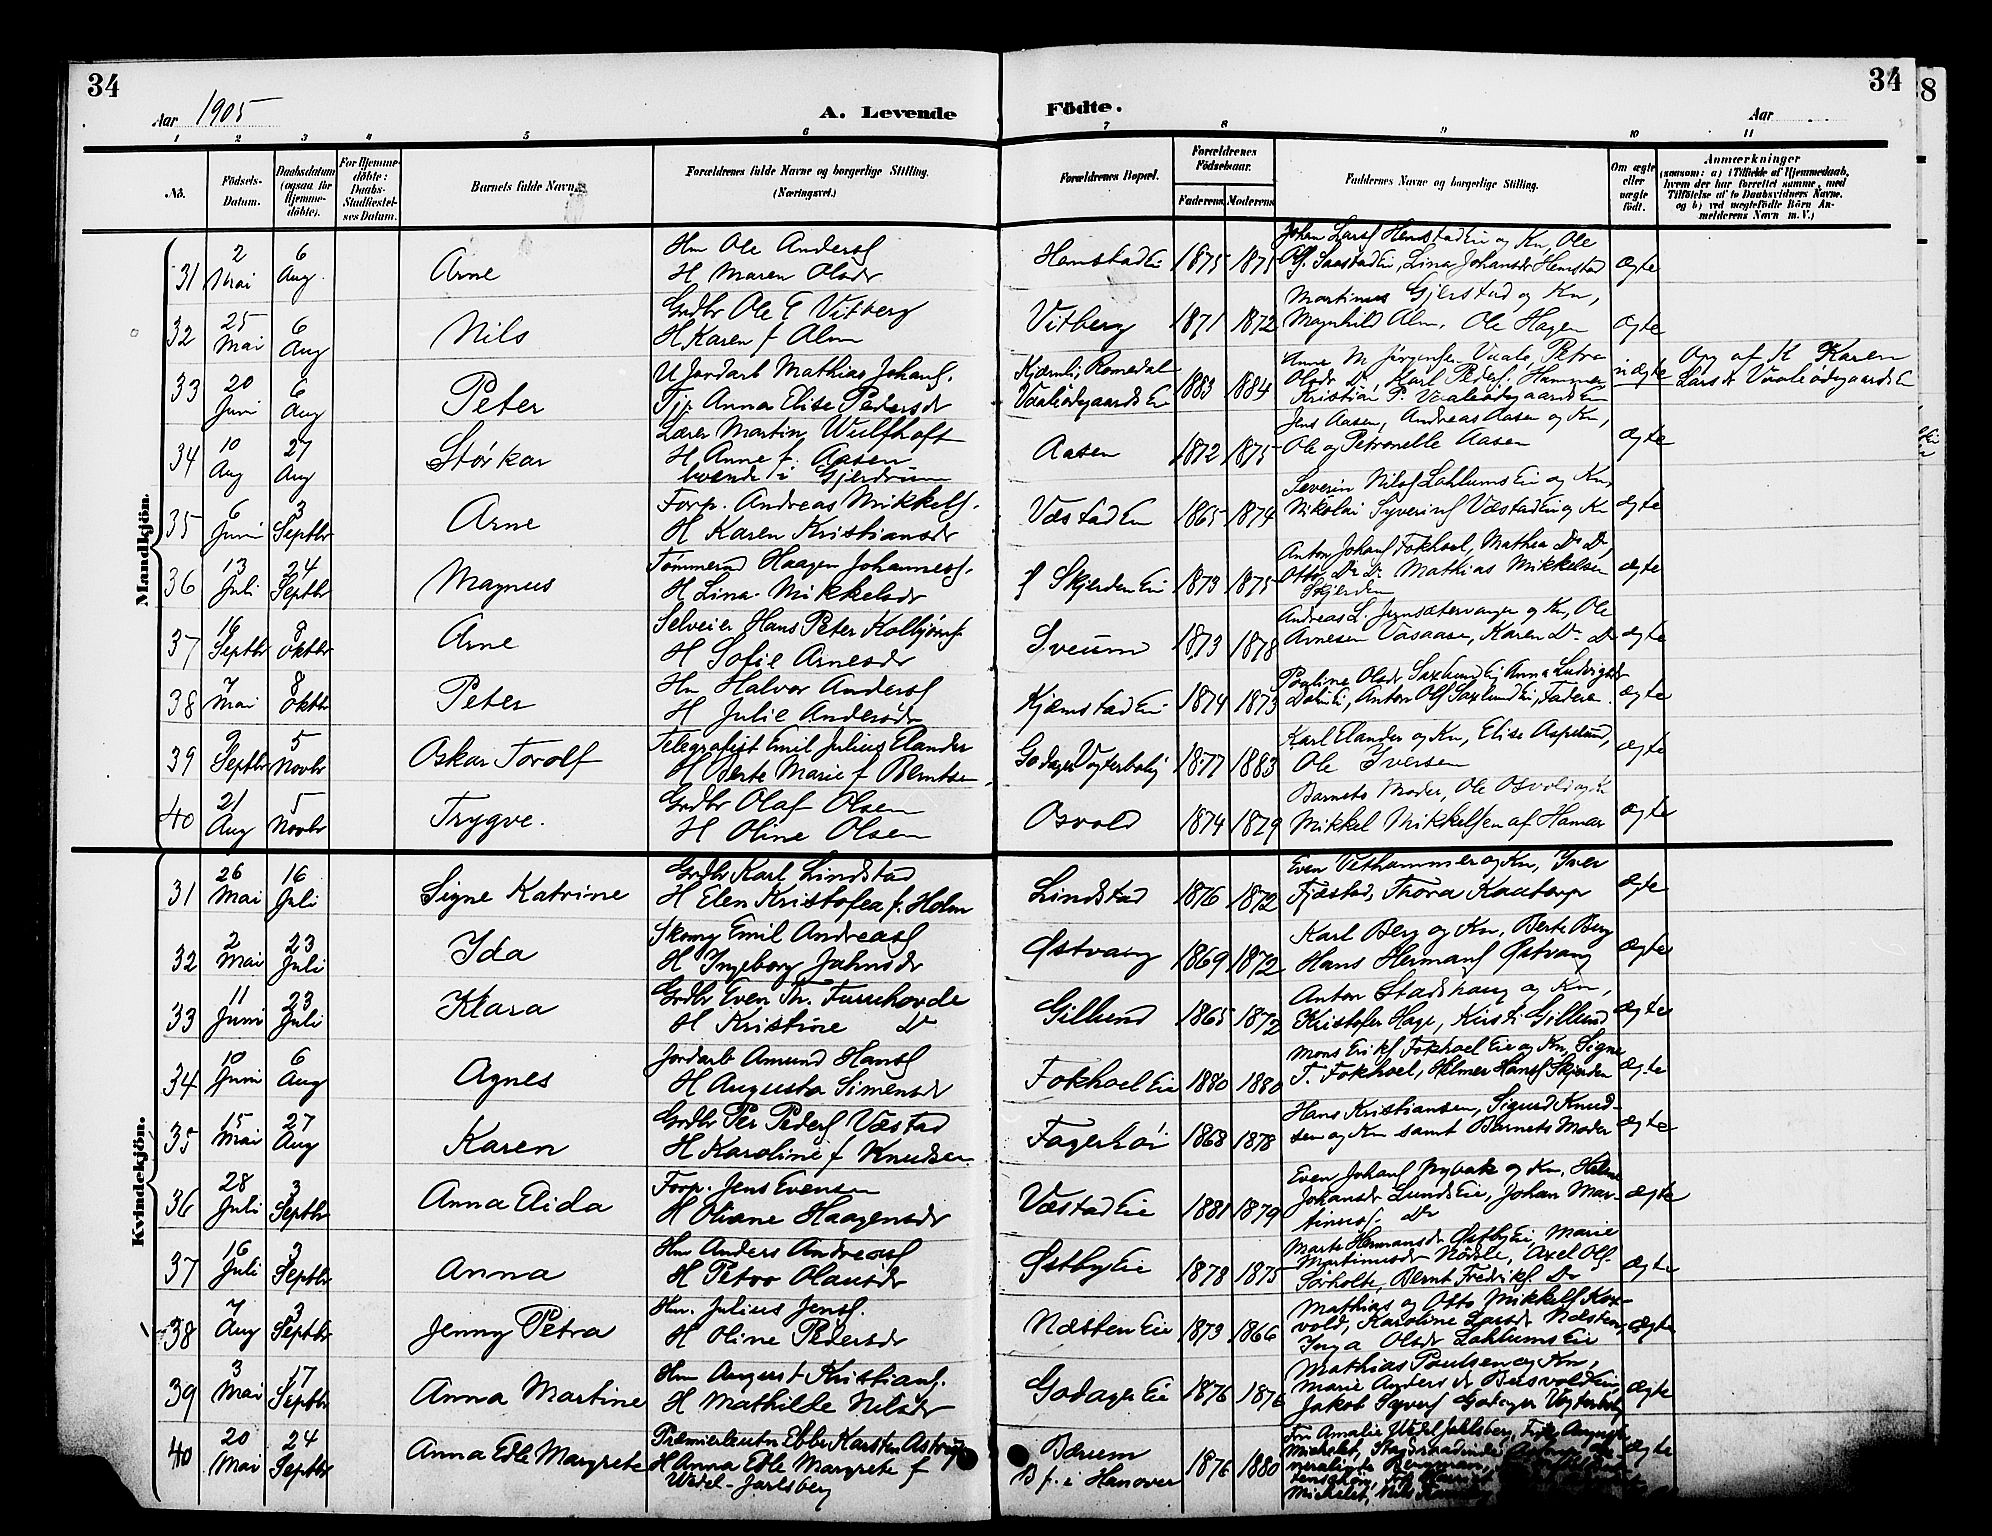 34
34
8
Aar 1905
A. Levende
Födte.
Aar
1 2 3 4 5 6 7 8 9 10 11
No.
Födsels-Datum.
Daabsdatum (ogsaa for Hjemmedöbte).
For Hjemmedöbte: Daabs-Stadfæstelses Datum.
Barnets fulde Navn.
Forældrenes fulde Navne og borgerlige Stilling. (Næringsvei.)
Forældrenes Bopæl.
Forældrenes Födselsaar.
Faderens. Moderens.
Faddernes Navne og borgerlige Stilling.
Om ægte eller uægte födt.
Anmærkninger
(saasom: a) i Tilfælde af Hjemmedaab, hvem der har forrettet samme, med Tilföielse af to Daabsvidners Navne. og b) ved uægtefödte Börn Anmelderens Navn m. V.)
Mandkjön.
31 2 Mai 6 Aug. Arne
Hm Ole Anders
H Maren Olsdr
Hemstad Ei 1875 1875
Johan Lars Hemstad Ei og Kn, Ole
Saastad Ei, Lina Johansdr Hemstad
ægte
32 25 Mai 6 Aug Nils
Grdbr Ole E Vitberg
H Karen f Alm
Vitberg 1871 1872
Martinus Gjerstad og Kn,
Magnhild Alm, Ole Hagen
ægte
33 20 Juni 6 Aug Peter
U Jordarb Mathias Johans.
Pip. Anna Elise Pedersdr
Kjærnli, Romedal
Vaaleødegaards Ei 1883 1884
Anne M Jørgensdr Vaale, Petra
Olsdr Do, Karl Peders. Hammer,
Kristian P. Vaaleødegaards Ei
uægte
Opg af K Karen
Larsdr Vaaleødegaards Ei
34 10 Aug 27 Aug Störkar
Lærer Martin Wulfhoft
H Anne f. Aasen
boende i Gjerdrum
Aasen 1872 1875
Jens Aasen, Andreas Aasen og Kn,
Ole og Petronelle Aasen
ægte
35 6 Juni 3 Septbr Arne
Forp. Andreas Mikkels.
H Karen Kristiansdr
Væstad Ei 1865 1874
Severin Nils Lohlums Ei og Kn,
Nikolai Syverins Væstad Ei og Kn
ægte
36 13 Juli 24 Septbr Magnus
Tømmerm Haagen Johannes.
H Lina Mikkelsdr
Skjerden Ei 1873 1875
Anton Johans Fokhoel, Mathea Do Do,
Otto Do Do Mathias Mikkelsen
Skjerden
ægte
37 16 Septbr 8 Oktbr Arne
Selveier Hans Peter Kolbjørns.
H Sofie Arnesdr
Sveum 1873 1878
Andreas L. og Kn, Ole
Arnesen Vasaasen, Karen Do Do
ægte
38 7 Mai 8 Oktbr Peter
Hm Halvor Anders
H Julie Andersdr
Kjæmstad Ei 1874 1873
Pauline Olsdr Saxlund Ei, Anna Ludvigsdr
Dolm Ei, Anton Ols Saxlund Ei, Faderen.
ægte
39 9 Septbr 5 Novbr Oskar Torolf
Telegrafist Emil Julius Elander
H Berte Marie f Berntsen
Godager Vogterbolig 1877 1883
Karl Elander og Kn, Elise Aspelund,
Ole Iversen
ægte
40 21 Aug 5 Novbr Trygve.
Grdbr Olaf Olsen
H Oline Olsen
Osvold 1874 1879
Barnets Moder, Ole Osvold og K
Mikkel Mikkelsen af Hamar
ægte
Kvindekjön.
31 26 Mai 16 Juli Signe Katrine
Grdbr Karl Lindstad
H Elen Kristofea f. Holm
Lindstad 1876 1872
Even Vethammer og Kn, Iver
Fjæstad, Thora Kaatorp
ægte
32 2 Mai 23 Juli Ida
Skomg Emil Andreas
H Ingeborg Jahnsdr
Østvang 1869 1872
Karl Berg og Kn, Berte Berg
Hans Hermans Østvang
ægte
33 11 Juni 23 Juli Klara
Grdbr Even Th. Furuhovde
H Kristine Do
Gillund 1865 1872
Anton Stadshaug og Kn,
Kristofer Hage, Kirsti Gillund
ægte
34 10 Juni 6 Aug Agnes
Jordarb Amund Hans
H Augusta Simensdr
Fokhoel Ei 1880 1880
Mons Eriks Fokhoel Ei og Kn, Signe
T. Fokhoel, Helmer Hans Skjerden
ægte
35 15 Mai 27 Aug Karen
Grdbr Per Peders Væstad
H Karoline f Knudsen
Fagerhöi 1868 1878
Hans Kristiansen, Sigurd Knud-
sen og Kn samt Barnets Moder
ægte
36 28 Juli 3 Septbr Anna Elida
Forp. Jens Evensen
H Oliane Haagensdr
Væstad Ei 1881 1879
Even Johans Nybak og Kn, Helene
Johansdr Lunds Ei, Johan Mar-
tinius. Do
ægte
37 16 Juli 3 Septbr Anna
Hm Anders Andreas
H Petra Olausdr
Østby Ei 1878 1875
Marte Hermansdr Østby Ei, Marie
Martinusdr Nødsle, Axel Ols.
Sörholte, Bernt Fredriks. Do
ægte
38 7 Aug 3 Septbr Jenny Petra
Hm. Julius Jens.
H Oline Pedersdr
Næsten Ei 1873 1866
Mathias og Otto Mikkels Kor-
vold, Karoline Larsdr Næsten,
Inga Olsdr Lohlums Ei
ægte
39 3 Mai 17 Septbr Anna Martine
Hm August Kristians.
H Mathilde Nilsdr
Godager Ei 1876 1876
Mathias Paulsen og Kn,
Marie Andersdr Bersvold Ei,
Jakob Syvers Godager Vogterbolig
ægte
40 20 Mai 24 Septbr Anna Edle Margrete
Premierløitn Ebbe Karsten Astrup
H Anna Edle Margrete f
Wedel-Jarlsberg
Bærum
B f. i Hanover 1876 1880
Fru Amalie Wedel Jarlsberg, Frk Augusta
Michelet,
Michelet, Nils
ægte